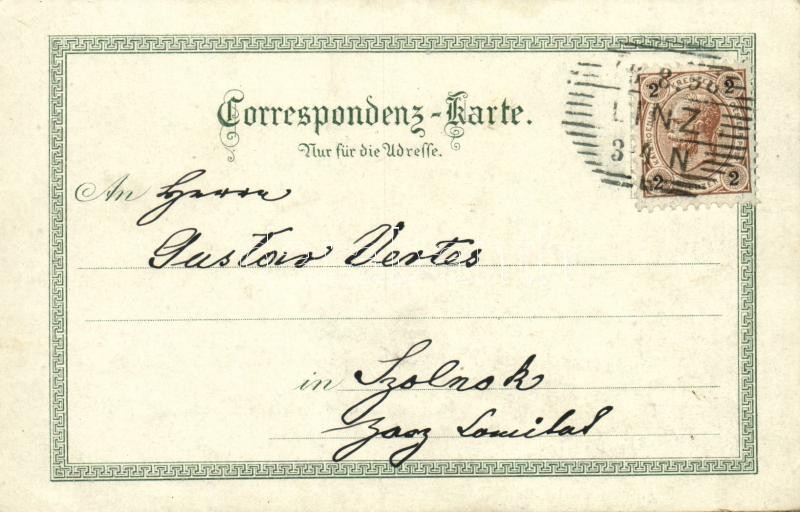 Correspondenz-Karte.
Nur für die Adresse.
2 2
LINZ
3-4 N
2 2
An Herrn
Gustav Vertes
in Szolnok